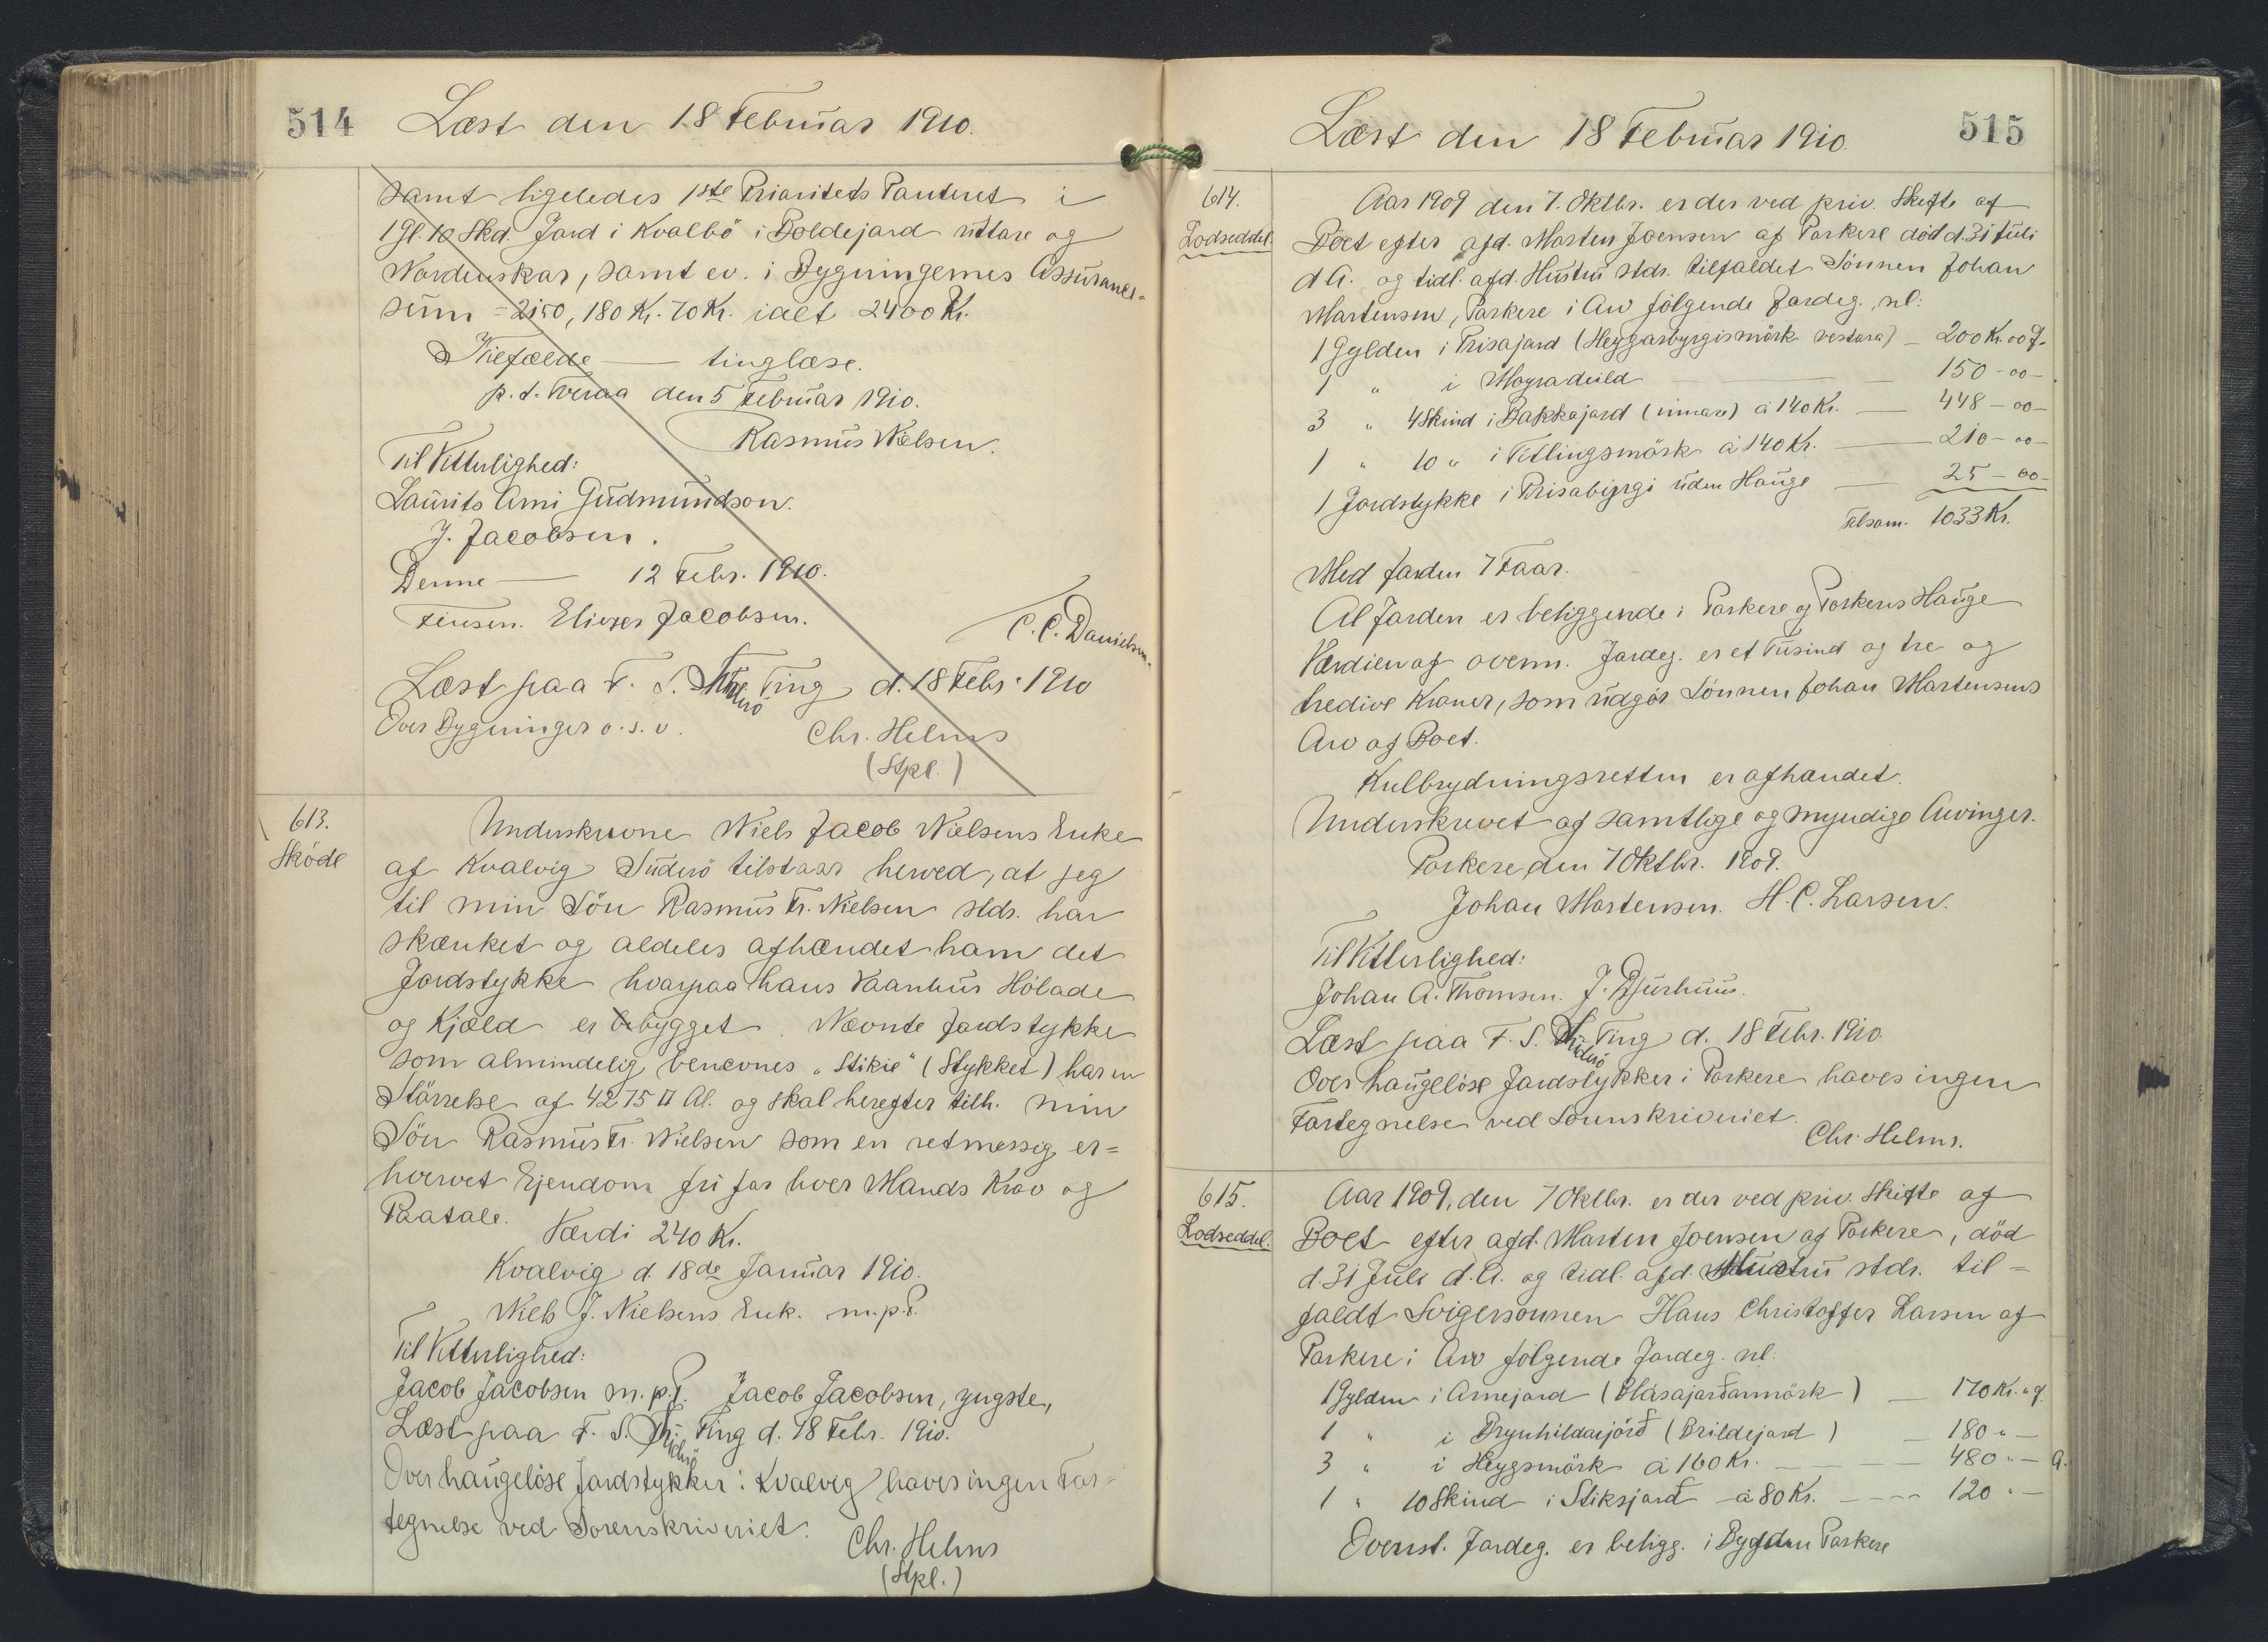 514
Læst den 18 Februar 1910.
samt ligeledes 1ste Prioritets Panteret i
1 Gl. 10 Skd. Jord i Kvalbö i Boldejard uttare og
Nordenskar, samt ev. i Bygningernes Assurance-
sum = 2150, 180 Kr. 70 Kr. ialt 2400 Kr.
Tilfælde — tinglæse.
p. t. Tveraa den 5 Februar 1910.
Rasmus Nielsen.
Til Vitterlighed:
Laurits Arni Gudmundson.
J. Jacobsen.
Denne — 12 Febr. 1910.
Jensen. Eliezer Jacobsen.
C. C. Danielsen.
Læst paa F. S. Suderö Ting d. 18 Febr. 1910
Over Bygninger o. s. v.
Chr. Helms
(Stpl.)
613.
Sköde
Underskrevne Niels Jacob Nielsens Enke
af Kvalvig Suderö tilstaar herved, at jeg
til min Sön Rasmus Fr. Nielsen stds. har
skænket og aldeles afhændet ham det
Jordstykke hvorpaa hans Vaanhus Hölade
og Kjæld er bebygget. Nævnte Jordstykke
som almindelig benevnes "Stikie" (Stykket) har en
Störrelse af 4275 □ Al. og skal herefter tilh. min
Sön Rasmus Fr. Nielsen som en retmessig er=
hvervet Ejendom fri for hver Mands Krav og
Paatale.
Værdi 240 Kr.
Kvalvig d. 18de Januar 1910.
Niels J. Nielsens Enk. m. p. P.
Til Vitterlighed:
Jacob Jacobsen m. p. P. Jacob Jacobsen, yngste,
Læst paa F. S. Suderö Ting d. 18 Febr. 1910.
Over haugelöse Jordstykker i Kvalvig haves ingen For=
tegnelse ved Sorenskriveriet.
Chr. Helms
(Stpl.)
Læst den 18 Februar 1910.
515
614.
Lodseddel.
Aar 1909 den 7. Oktbr. er der ved priv. Skifte af
Boet efter afd. Morten Joensen af Porkere död d. 31 Juli
d. A. og tidl. afd. Hustru stds. tilfaldet Sönnen Johan
Mortensen, Porkere i Arv fölgende Jordeg. nl:
1 Gylden i Prisajard (Heygarbyrgismörk vestara) — 200 Kr. 00 Ø.
1 " i Mogradeild — 150 - 00 -
3 " 4 Skind i Bakkajard (innare) à 140 Kr. — 448 - 00 -
1 " 10 " i Titlingsmörk à 140 Kr. — 210 - 00 -
1 Jordstykke i Prisabyrgi uden Hauge — 25 - 00 -
Tilsam. 1033 Kr.
Med Jorden 7 Faar.
Al Jorden er beliggende i Porkere og Porkeres Hauge
Værdien af ovenn. Jordeg. er et Tusind og tre og
tredive Kroner, som udgör Sönnen Johan Mortensens
Arv af Boet.
Kulbrydningsretten er afhændet.
Underskrevet af samtlige og myndige Arvinger.
Porkere den 7 Oktbr. 1909.
Johan Mortensen. H. C. Larsen.
Til Vitterlighed:
Johan A. Thomsen. J. Djurhuus.
Læst paa F. S. Suderö Ting d. 18 Febr. 1910.
Over haugelöse Jordstykker i Porkere haves ingen
Fortegnelse ved Sorenskriveriet.
Chr. Helms.
615.
Lodseddel.
Aar 1909, den 7 Oktbr. er der ved priv. Skifte af
Boet efter afd. Morten Joensen af Porkere, död
d. 31 Juli d. A. og tidl. afd. Hustru stds. til=
faldt Svigersönnen Hans Christoffer Larsen af
Porkere i Arv fölgende Jordeg. nl:
1 Gylden i Arnejard (Blásajarðarmörk) — 170 Kr. " Ø.
1 " i Brynhildarjörð (Brildejard) — 180 " —
3 " i Heygsmörk à 160 Kr. — 480 " —
1 " 10 Skind i Stiksjarð à 80 Kr. — 120 " —
Ovenst. Jordeg. er beligg. i Bygden Porkere